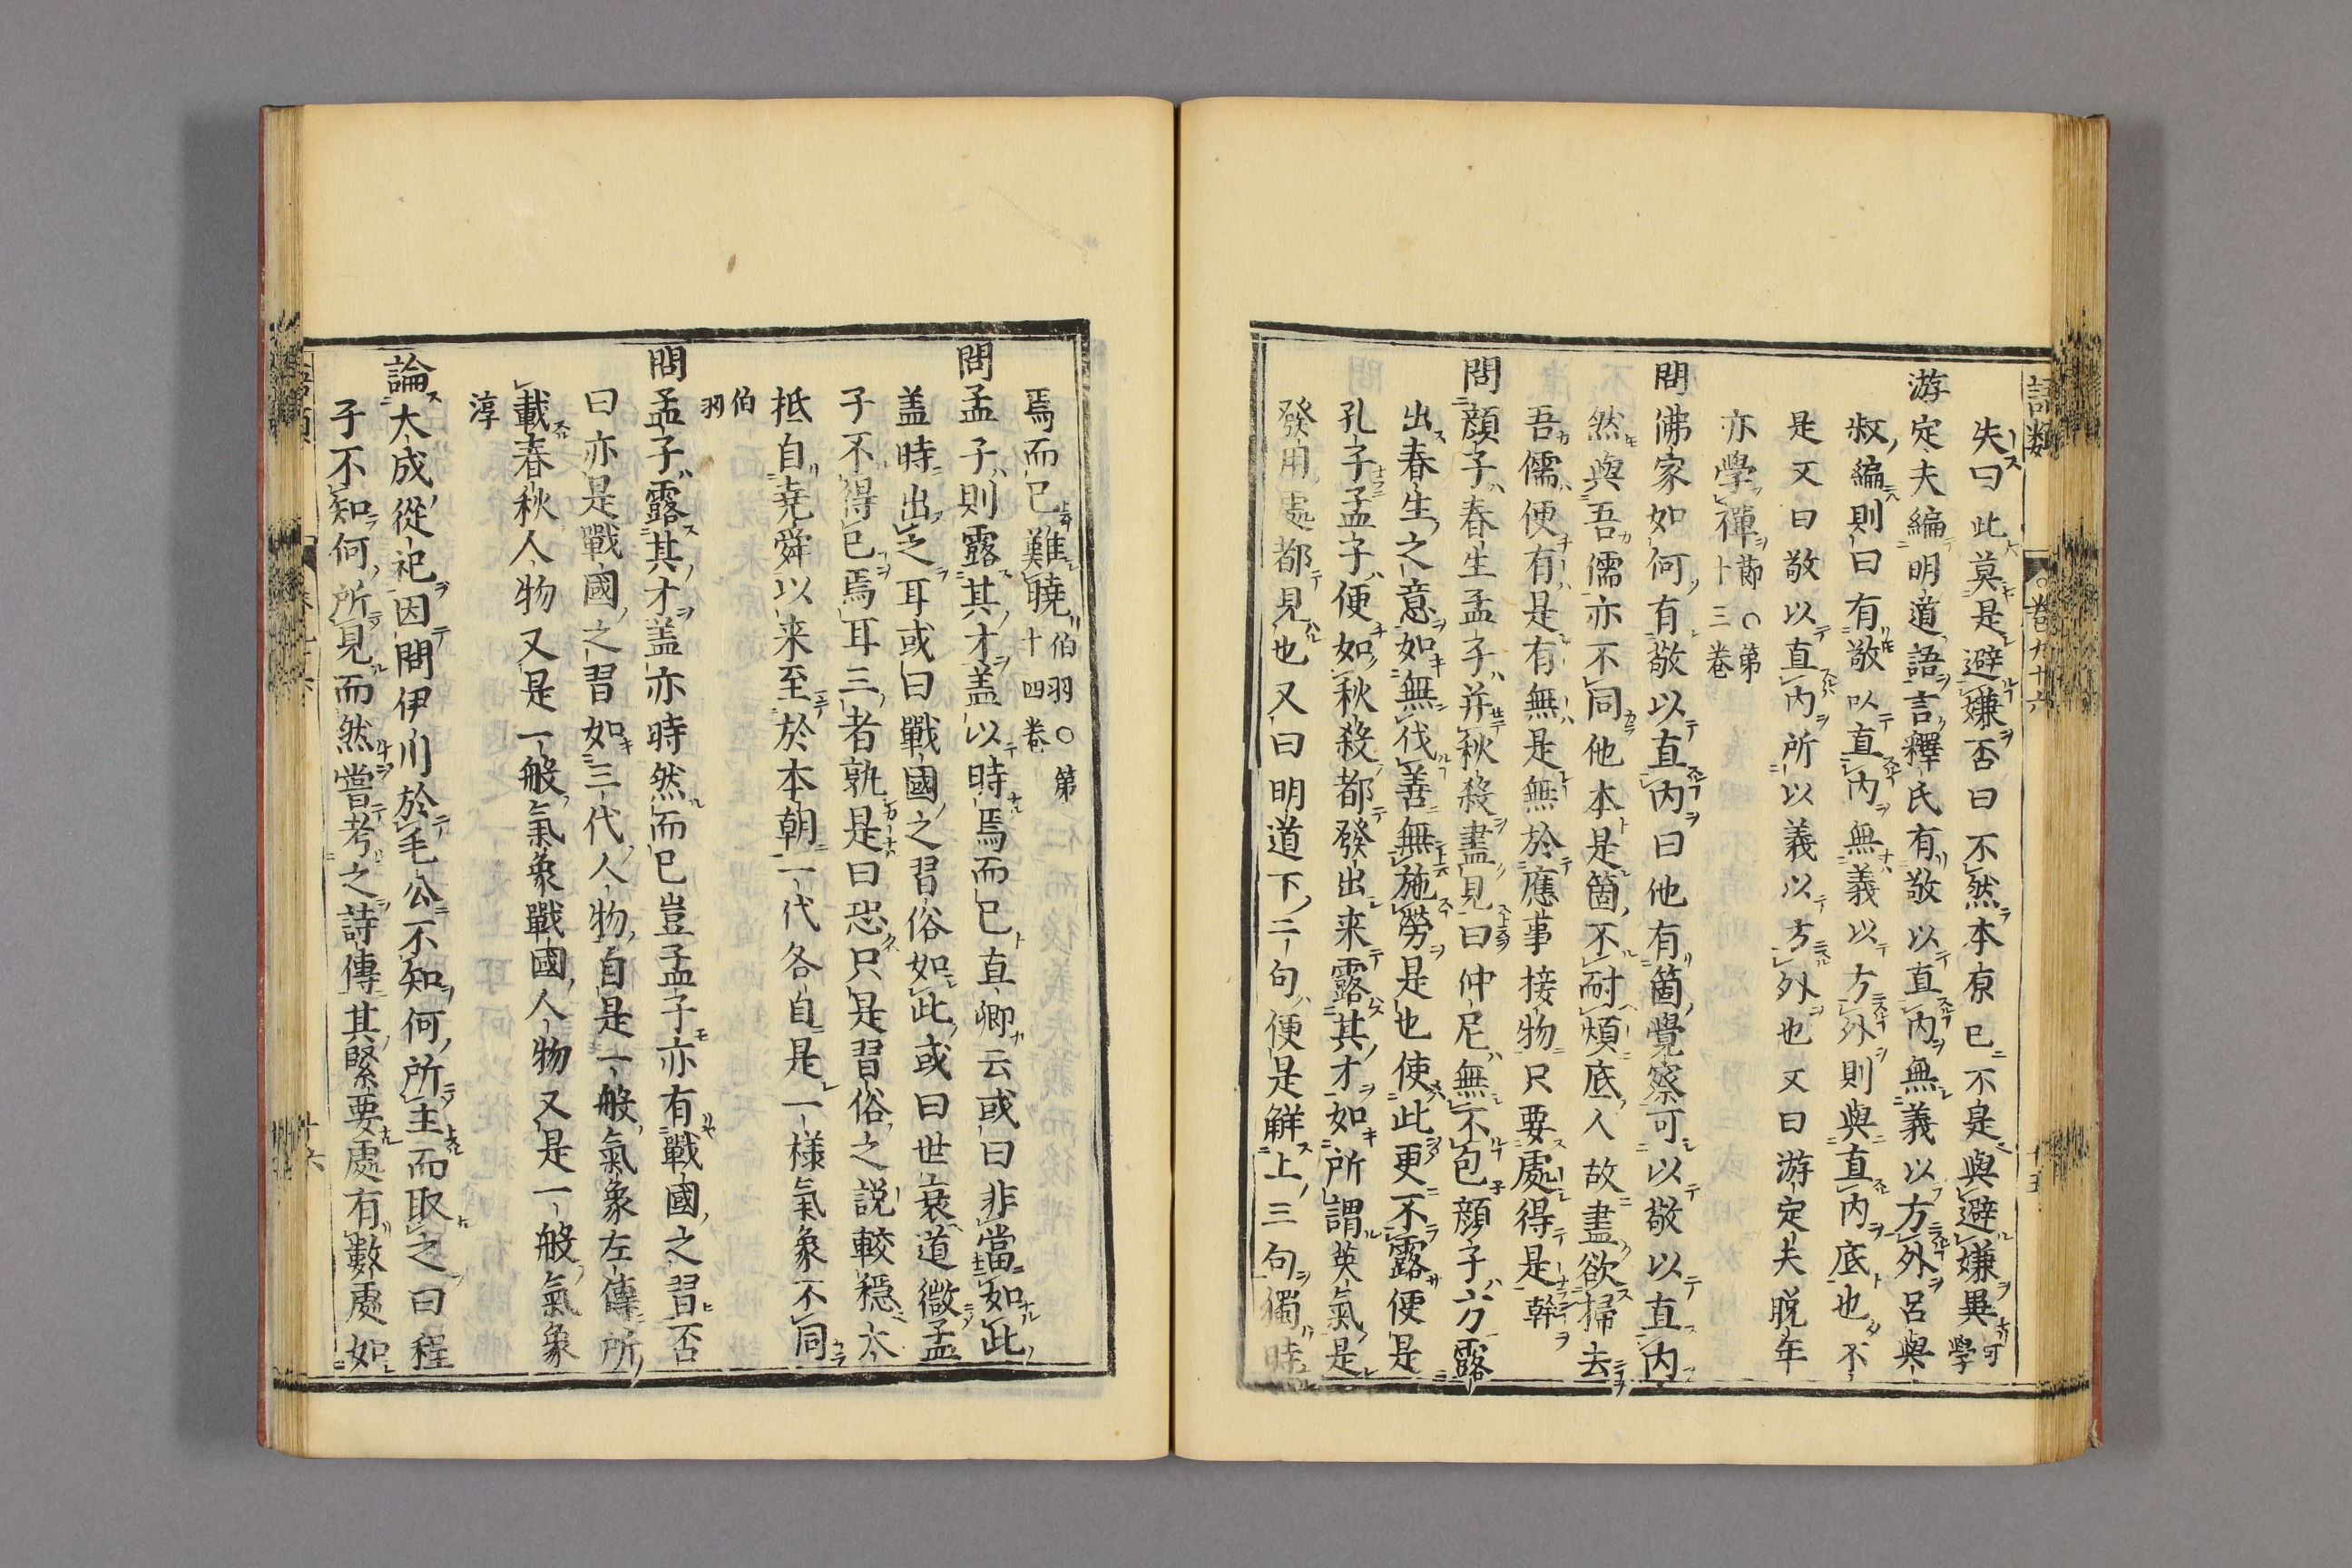 語類
卷九十六
十五
失曰此莫是避嫌否曰不然本原已不是與避嫌異可學
游定夫編明道語言釋氏有敬以直内無義以方外呂與
叔編則曰有敬以直内無義以方外則與直内底也不
是又曰敬以直内所以義以方外也又曰游定夫晚年
亦學禪節○第十三卷
問佛家如何有敬以直内曰他有箇覺察可以敬以直内
然與吾儒亦不同他本是箇不耐煩底人故盡欲掃去
吾儒便有是有無是無於應事接物只要處得是幹
問顏子春生孟子并秋殺盡見曰仲尼無不包顏子方露
出春生之意如無伐善無施勞是也使此更不露便是
孔子孟子便如秋殺都發出来露其才如所謂英氣是
發用處都見也又曰明道下二句便是解上三句獨時
焉而已難曉伯羽○第十四卷
問孟子則露其才盖以時焉而已直卿云或曰非當如此
盖時出之耳或曰戰國之習俗如此或曰世衰道微孟
子不得已焉耳三者孰是曰恐只是習俗之說較穩大
抵自堯舜以来至於本朝一代各自是一樣氣象不同
伯羽
問孟子露其才盖亦時然而已豈孟子亦有戰國之習否
曰亦是戰國之習如三代人物自是一般氣象左傳所
載春秋人物又是一般氣象戰國人物又是一般氣象
淳
論大成從祀因問伊川於毛公不知何所主而取之曰程
子不知何所見而然嘗考之詩傳其緊要處有數處如